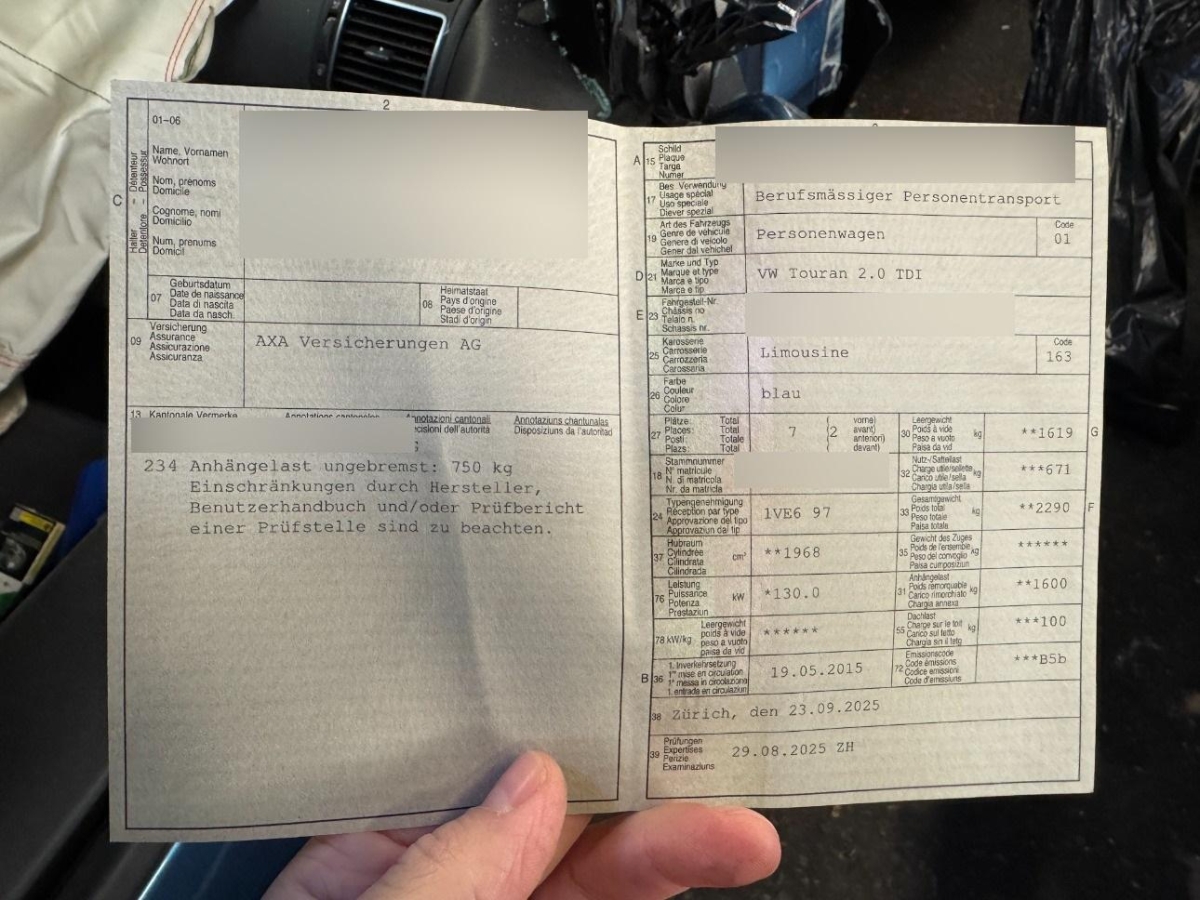 2
01-06
C
Halter - Détenteur
Detentore - Possessur
Name, Vornamen
Wohnort
Nom, prénoms
Domicile
Cognome, nomi
Domicilio
Num, prenums
Domicil
07
Geburtsdatum
Date de naissance
Data di nascita
Data da nasch.
08
Heimatstaat
Pays d'origine
Paese d'origine
Stadi d'origin
09
Versicherung
Assurance
Assicurazione
Assicuranza
AXA Versicherungen AG
13 Kantonale Vermerke
Annotations cantonales
Annotaziuns chantunalas
Disposiziuns da l'autoritad
234 Anhängelast ungebremst: 750 kg
Einschränkungen durch Hersteller,
Benutzerhandbuch und/oder Prüfbericht
einer Prüfstelle sind zu beachten.
A 15
Schild
Plaque
Targa
Numer
17
Bes. Verwendung
Usage spécial
Uso speciale
Diever spezial
Berufsmässiger Personentransport
19
Art des Fahrzeugs
Genre de véhicule
Genere di veicolo
Gener dal vehichel
Personenwagen
Code
01
D 21
Marke und Typ
Marque et type
Marca e tipo
Marca e tip
VW Touran 2.0 TDI
E 23
Fahrgestell-Nr.
Châssis no
Telaio n.
Schassis nr.
25
Karosserie
Carrosserie
Carrozzeria
Carossaria
Limousine
Code
163
26
Farbe
Couleur
Colore
Colur
blau
27
Plätze: Total
Places: Total
Posti: Totale
Plazs: Total
7
(2
vorne)
avant)
anteriori)
devant)
30
Leergewicht
Poids à vide
Peso a vuoto
Paisa da vid
kg
**1619
G
18
Stammnummer
N° matricule
N. di matricola
Nr. da matricla
32
Nutz-/Sattellast
Charge utile/sellette
Carico utile/sella
Chargia utila/sella
kg
***671
24
Typengenehmigung
Réception par type
Approvazione del tipo
Approvaziun dal tip
1VE6 97
33
Gesamtgewicht
Poids total
Peso totale
Paisa totala
kg
**2290
F
37
Hubraum
Cylindrée
Cilindrata
Cilindrada
cm³
**1968
35
Gewicht des Zuges
Poids de l'ensemble
Peso del convoglio
Paisa cumposiziun
kg
******
76
Leistung
Puissance
Potenza
Prestaziun
kW
*130.0
31
Anhängelast
Poids remorquable
Carico rimorchiato
Chargia annexa
kg
**1600
78 kW/kg
Leergewicht
poids à vide
peso a vuoto
paisa da vid
******
55
Dachlast
Charge sur le toit
Carico sul tetto
Chargia sin il tetg
kg
***100
B 36
1. Inverkehrsetzung
1re mise en circulation
1a messa in circolazione
1. entrada en circulaziun
19.05.2015
72
Emissionscode
Code émissions
Codice emissioni
Code d'emissiuns
***B5b
38 Zürich, den 23.09.2025
39
Prüfungen
Expertises
Perizie
Examinaziuns
29.08.2025 ZH